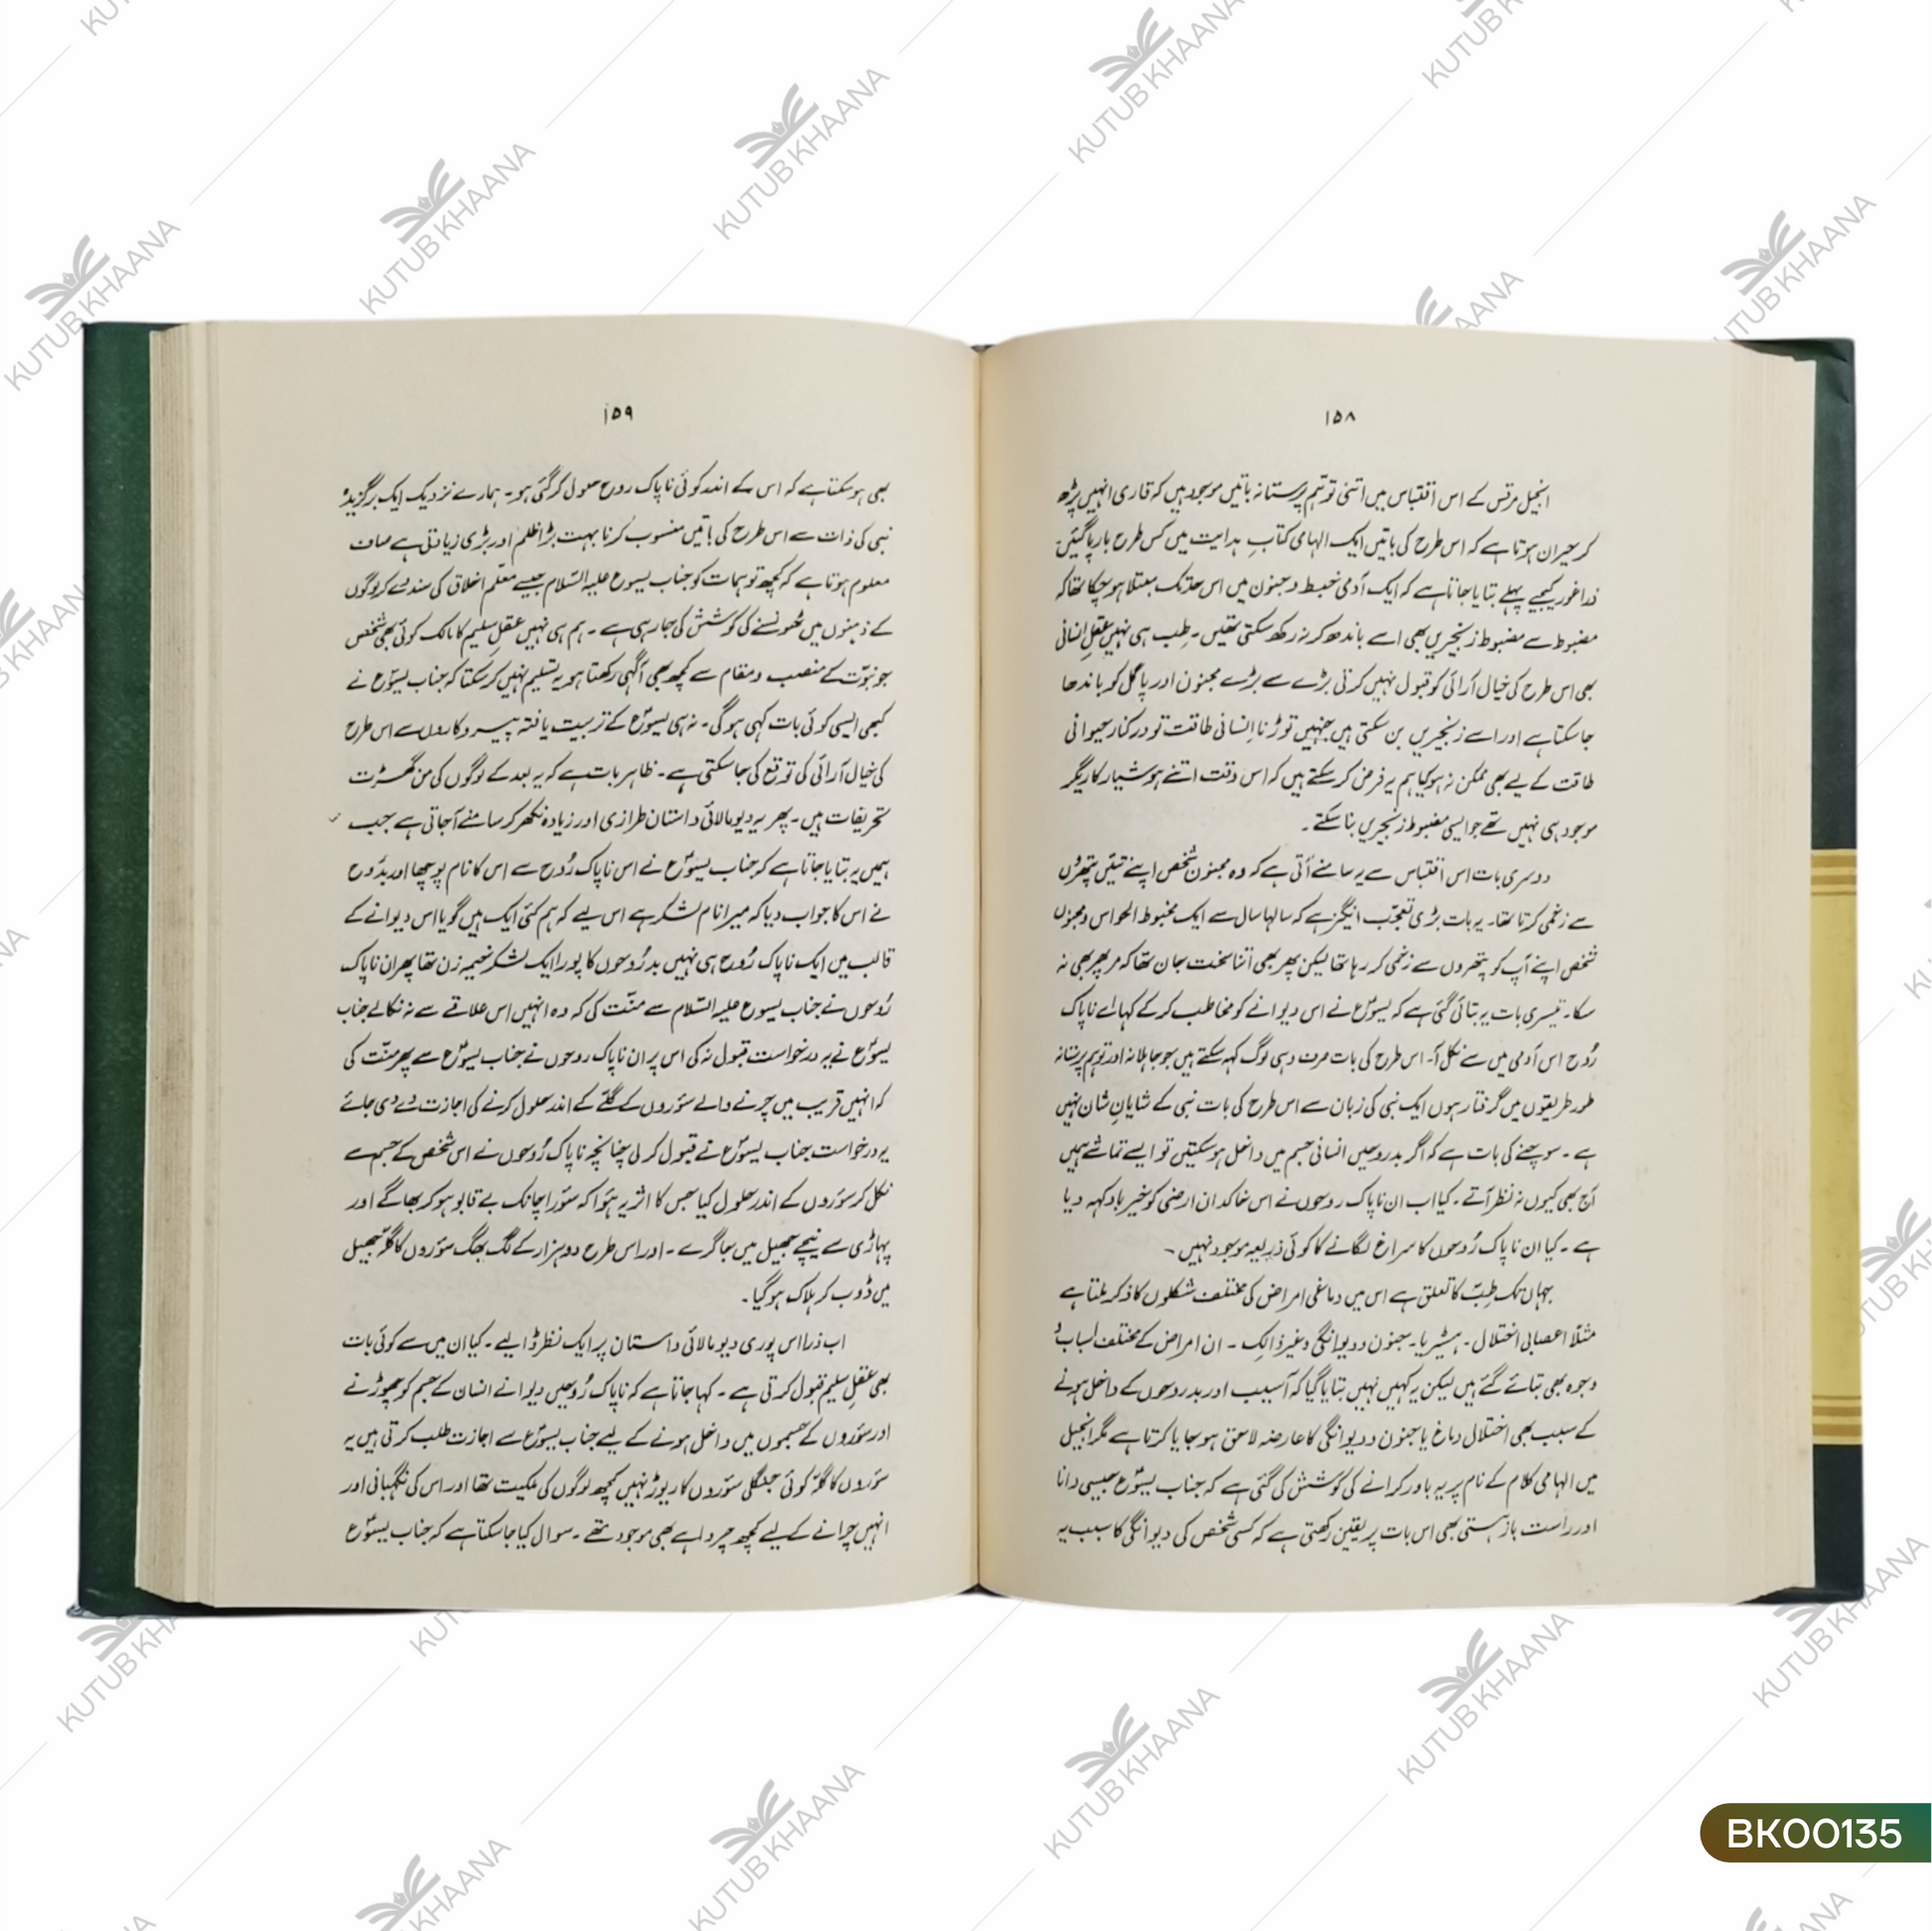 ۱۵۸
انجیل مرقس کے اس اقتباس میں اتنی توہّم پرستانہ باتیں موجود ہیں کہ قاری انہیں پڑھ
کر حیران ہوتا ہے کہ اس طرح کی باتیں ایک الہامی کتابِ ہدایت میں کس طرح بار پا گئیں۔
ذرا غور کیجیے پہلے بتایا جاتا ہے کہ ایک آدمی خبط و جنون میں اس حد تک مبتلا ہو چکا تھا کہ
مضبوط سے مضبوط زنجیریں بھی اسے باندھ کر نہ رکھ سکتی تھیں۔ طِب ہی نہیں عقلِ انسانی
بھی اس طرح کی خیال آرائی کو قبول نہیں کرتی بڑے سے بڑے مجنون اور پاگل کو باندھا
جا سکتا ہے اور اسے زنجیریں بن سکتی ہیں جنہیں توڑنا اِنسانی طاقت تو درکنار حیوانی
طاقت کے لیے بھی ممکن نہ ہو کیا ہم یہ فرض کر سکتے ہیں کہ اس وقت اتنے ہوشیار کاریگر
موجود ہی نہیں تھے جو ایسی مضبوط زنجیریں بنا سکتے ۔
دوسری بات اس اقتباس سے یہ سامنے آتی ہے کہ وہ مجنون شخص اپنے تئیں پتھروں
سے زخمی کرتا تھا۔ یہ بات بڑی تعجّب انگیز ہے کہ سالہا سال سے ایک مخبوط الحواس و مجنوں
شخص اپنے آپ کو پتھروں سے زخمی کر رہا تھا لیکن پھر بھی اتنا سخت جان تھا کہ مر پھر بھی نہ
سکا۔ تیسری بات یہ بتائی گئی ہے کہ یسوعؑ نے اس دیوانے کو مخاطب کر کے کہا اے ناپاک
رُوح اس آدمی میں سے نکل آ۔ اس طرح کی بات صرف وہی لوگ کہہ سکتے ہیں جو جاہلانہ اور توہم پرستانہ
طور طریقوں میں گرفتار ہوں ایک نبی کی زبان سے اس طرح کی بات نبی کے شایانِ شان نہیں
ہے ۔ سوچنے کی بات ہے کہ اگر بدروحیں انسانی جسم میں داخل ہو سکتیں تو ایسے تماشے ہمیں
آج بھی کیوں نہ نظر آتے ۔ کیا اب ان ناپاک روحوں نے اس خاکدانِ ارضی کو خیر باد کہہ دیا
ہے ۔ کیا ان ناپاک رُوحوں کا سراغ لگانے کا کوئی ذریعہ موجود نہیں ۔
جہاں تک طِبّ کا تعلق ہے اس میں دماغی امراض کی مختلف شکلوں کا ذکر ملتا ہے
مثلاً اعصابی اختلال ۔ ہسٹیریا ۔ جنون و دیوانگی وغیر ذٰالک ۔ ان امراض کے مختلف اسباب و
وجوہ بھی بتائے گئے ہیں لیکن یہ کہیں نہیں بتایا گیا کہ آسیب اور بد روحوں کے داخل ہونے
کے سبب بھی اختلال دماغ یا جنون و دیوانگی کا عارضہ لاحق ہو جایا کرتا ہے مگر انجیل
میں الہامی کلام کے نام پر یہ باور کرانے کی کوشش کی گئی ہے کہ جناب یسوعؑ جیسی دانا
اور راست باز ہستی بھی اس بات پر یقین رکھتی ہے کہ کسی شخص کی دیوانگی کا سبب یہ
۱۵۹
بھی ہو سکتا ہے کہ اس کے اندر کوئی ناپاک روح حلول کر گئی ہو ۔ ہمارے نزدیک ایک برگزیدہ
نبی کی ذات سے اس طرح کی باتیں منسوب کرنا بہت بڑا ظلم اور بڑی زیادتی ہے صاف
معلوم ہوتا ہے کہ کچھ توہمات کو جناب یسوع علیہ السّلام جیسے معلّم اخلاق کی سند دے کر لوگوں
کے ذہنوں میں ٹھونسنے کی کوشش کی جا رہی ہے ۔ ہم ہی نہیں عقلِ سلیم کا مالک کوئی بھی شخص
جو نبوّت کے منصب و مقام سے کچھ بھی آگہی رکھتا ہو یہ تسلیم نہیں کر سکتا کہ جناب یسوعؑ نے
کبھی ایسی کوئی بات کہی ہو گی ۔ نہ ہی یسوعؑ کے تربیت یافتہ پیروکاروں سے اس طرح
کی خیال آرائی کی توقع کی جا سکتی ہے ۔ ظاہر بات ہے کہ یہ بعد کے لوگوں کی من گھڑت
تحریفات ہیں ۔ پھر یہ دیومالائی داستان طرازی اور زیادہ نکھر کر سامنے آ جاتی ہے جب
ہمیں یہ بتایا جاتا ہے کہ جناب یسوعؑ نے اس ناپاک رُوح سے اس کا نام پوچھا اور بدرُوح
نے اس کا جواب دیا کہ میرا نام لشکر ہے اس لیے کہ ہم کئی ایک ہیں گویا اس دیوانے کے
قالب میں ایک ناپاک رُوح ہی نہیں بد رُوحوں کا پورا ایک لشکر خیمہ زن تھا پھر ان ناپاک
رُوحوں نے جناب یسوع علیہ السّلام سے منّت کی کہ وہ انہیں اس علاقے سے نہ نکالے جناب
یسوعؑ نے یہ درخواست قبول نہ کی اس پر ان ناپاک روحوں نے جناب یسوعؑ سے پھر منّت کی
کہ انہیں قریب میں چرنے والے سؤروں کے گلّے کے اندر حلول کرنے کی اجازت دے دی جائے
یہ درخواست جناب یسوعؑ نے قبول کر لی چنانچہ ناپاک رُوحوں نے اس شخص کے جسم سے
نکل کر سؤروں کے اندر حلول کیا جس کا اثر یہ ہُوا کہ سؤر اچانک بے قابو ہو کر بھاگے اور
پہاڑی سے نیچے جھیل میں جا گرے ۔ اور اس طرح دو ہزار کے لگ بھگ سؤروں کا گلّہ جھیل
میں ڈوب کر ہلاک ہو گیا ۔
اب ذرا اس پوری دیومالائی داستان پر ایک نظر ڈالیے ۔ کیا ان میں سے کوئی بات
بھی عقلِ سلیم قبول کرتی ہے ۔ کہا جاتا ہے کہ ناپاک رُوحیں دیوانے انسان کے جسم کو چھوڑنے
اور سؤروں کے جسموں میں داخل ہونے کے لیے جناب یسوعؑ سے اجازت طلب کرتی ہیں یہ
سؤروں کا گلّہ کوئی جنگلی سؤروں کا ریوڑ نہیں کچھ لوگوں کی ملکیت تھا اور اس کی نگہبانی اور
انہیں چرانے کے لیے کچھ چرواہے بھی موجود تھے ۔ سوال کیا جا سکتا ہے کہ جناب یسوعؑ
KUTUB KHAANA
BK00135